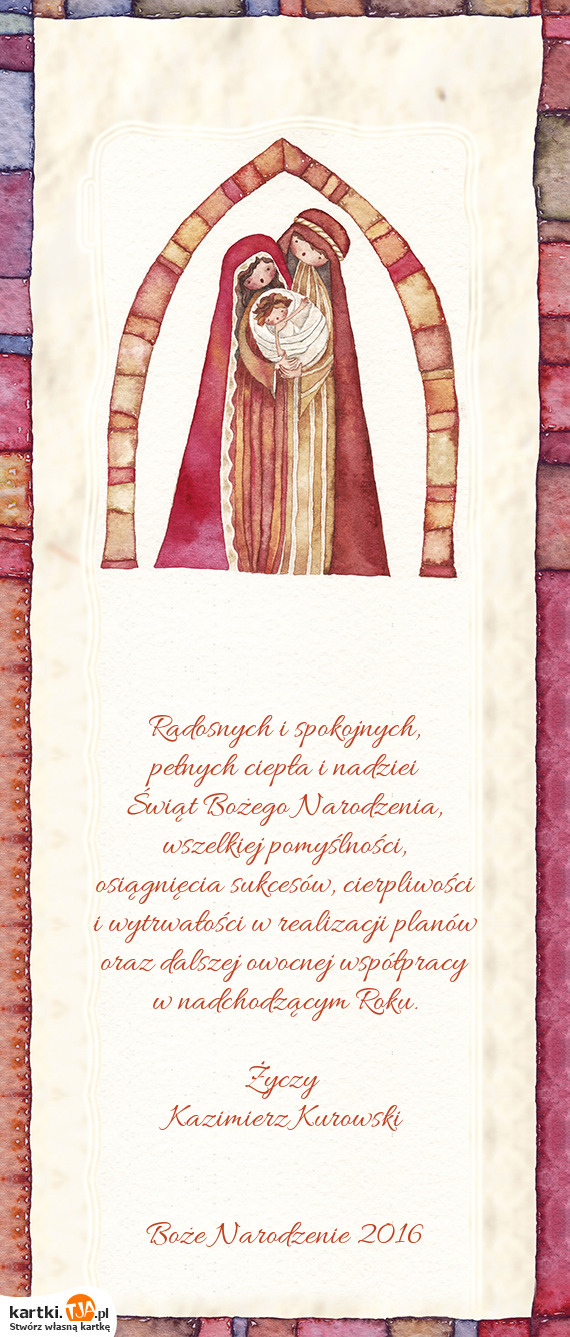 Radosnych i spokojnych,
pełnych ciepła i nadziei
Świąt Bożego Narodzenia,
wszelkiej pomyślności,
osiągnięcia sukcesów, cierpliwości
i wytrwałości w realizacji planów
oraz dalszej owocnej współpracy
w nadchodzącym Roku.
Życzy
Kazimierz Kurowski
Boże Narodzenie 2016
kartki.TJA.pl
Stwórz własną kartkę